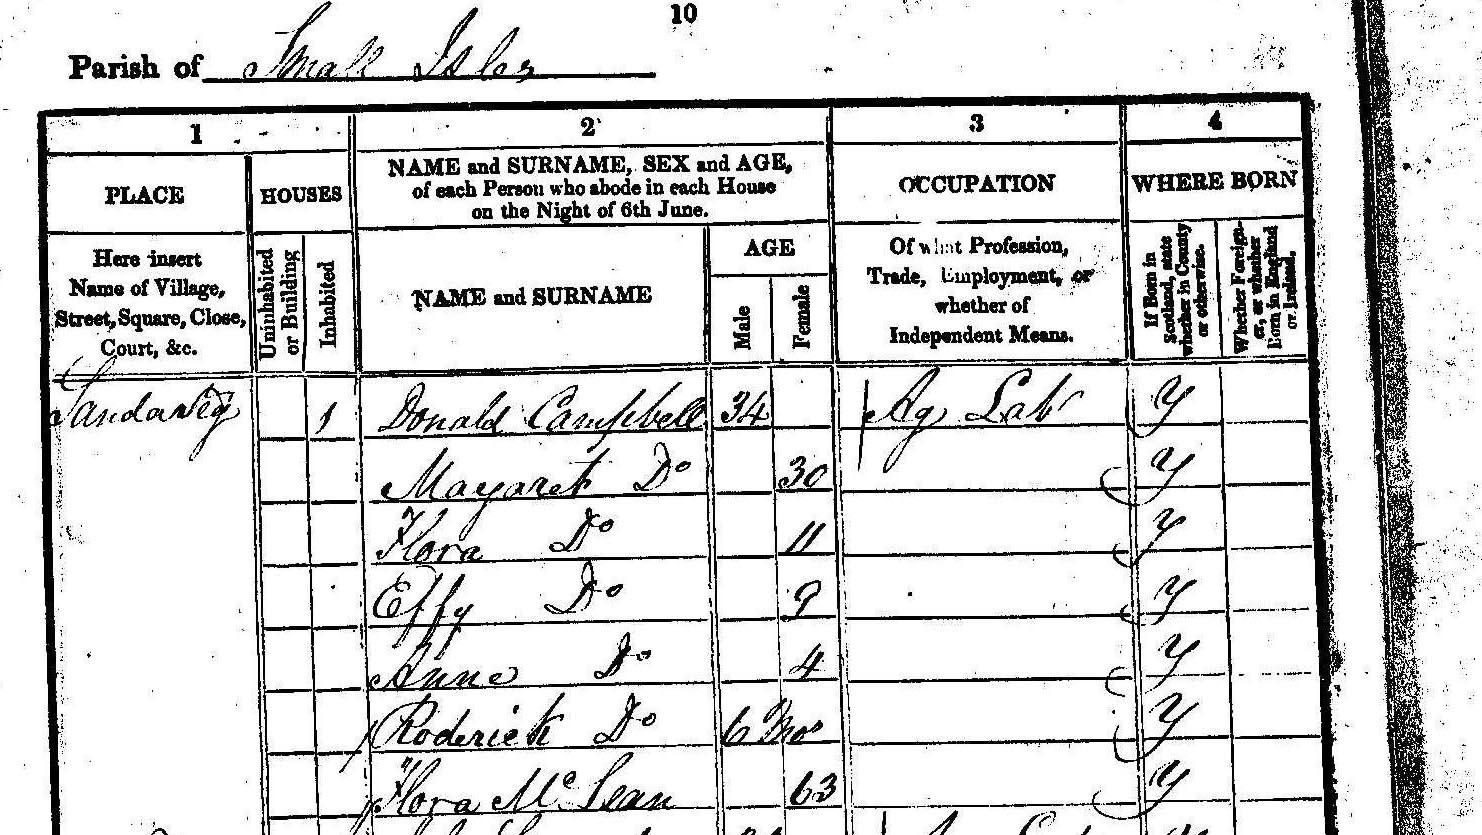 10
Parish of Small Isles
1 2 3 4
PLACE HOUSES NAME and SURNAME, SEX and AGE, of each Person who abode in each House on the Night of 6th June. OCCUPATION WHERE BORN
Here insert Name of Village, Street, Square, Close, Court, &c. Uninhabited or Building Inhabited NAME and SURNAME AGE Male Female Of what Profession, Trade, Employment, or whether of Independent Means. If Born in Scotland, state whether in County or otherwise. Whether Foreigner, or whether Born in England or Ireland.
Sandaveg 1 Donald Campbell 34 Ag Lab Y
Margaret Do 30 Y
Flora Do 11 Y
Effy Do 9 Y
Anne Do 4 Y
Roderick Do 6 Mos Y
Flora McLean 63 Y